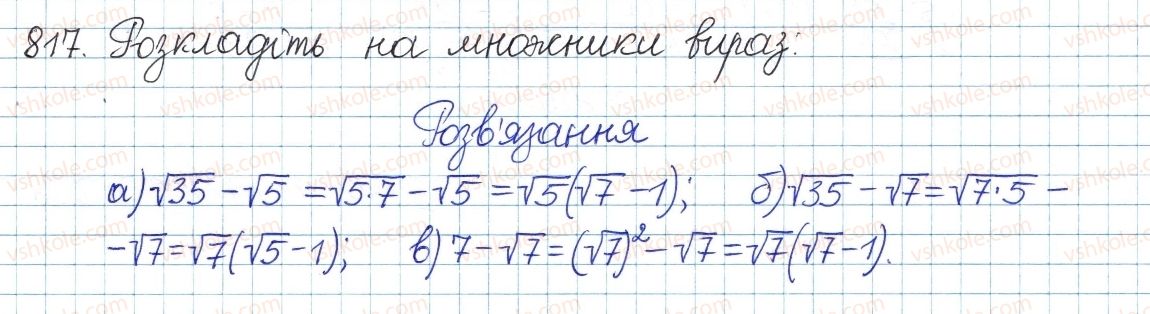 817. Розкладіть на множники вираз:
Розв'язання
а) √35 - √5 = √5·7 - √5 = √5(√7 - 1); б) √35 - √7 = √7·5 -
- √7 = √7(√5 - 1); в) 7 - √7 = (√7)² - √7 = √7(√7 - 1).